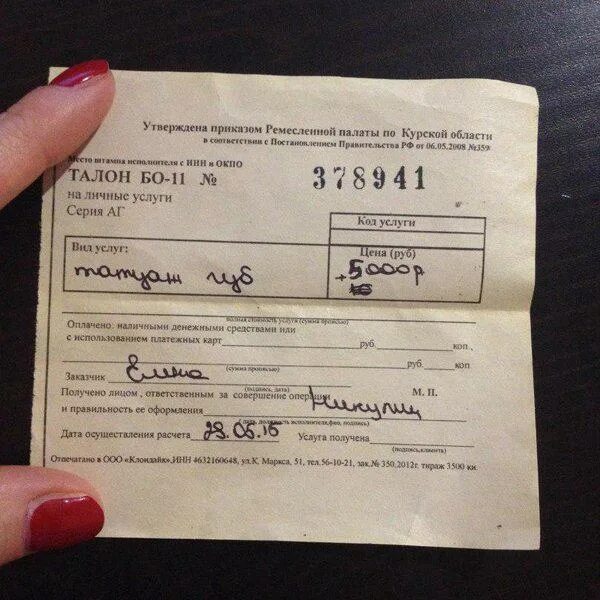 Утверждена приказом Ремесленной палаты по Курской области
в соответствии с Постановлением Правительства РФ от 06.05.2008 №359
Место штампа исполнителя с ИНН и ОКПО
ТАЛОН БО-11 № 378941
на личные услуги
Серия АГ
Код услуги
Вид услуг:
Цена (руб)
татуаж губ
5000р
полная стоимость услуги (сумма прописью)
Оплачено: наличными денежными средствами или
с использованием платежных карт руб. коп.,
(сумма прописью) руб. коп.
Заказчик Елена
(подпись, дата)
Получено лицом, ответственным за совершение операции М. П.
и правильность ее оформления Никулин
(дата, должность исполнителя, фио, подпись)
Дата осуществления расчета 29.05.16 Услуга получена
(подпись, клиента)
Отпечатано в ООО «Клондайк», ИНН 4632160648, ул.К. Маркса, 51, тел.56-10-21, зак.№ 350,2012г. тираж 3500 кн